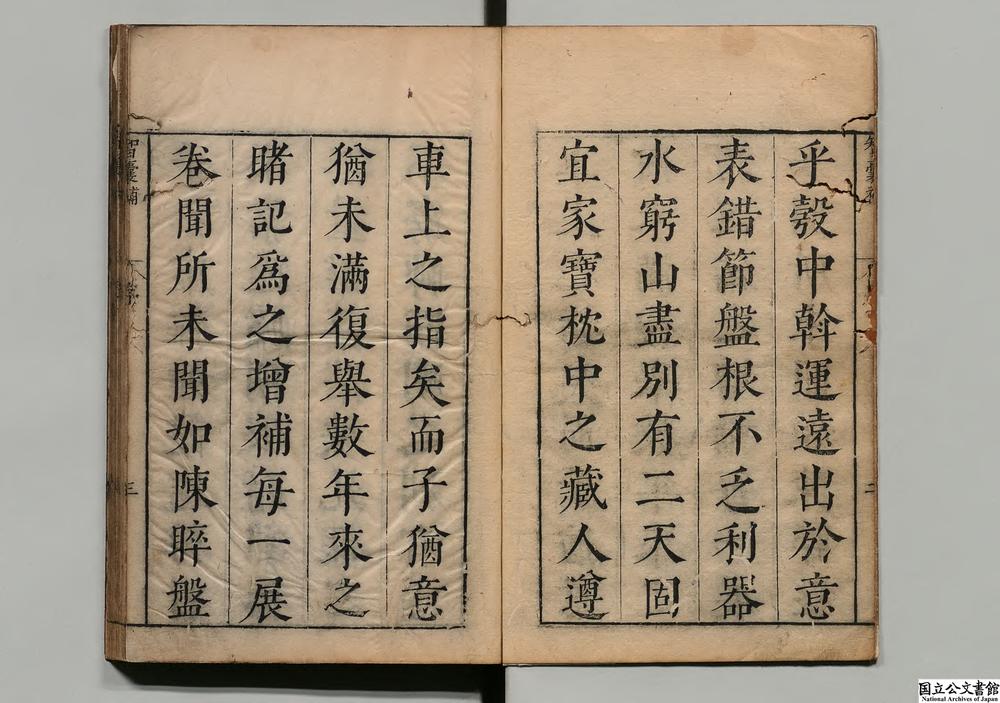 乎彀中斡運遠出於意
表錯節盤根不乏利器
水窮山盡別有二天固
宜家寶枕中之藏人遵
車上之指矣而子猶意
猶未滿復舉數年來之
睹記爲之增補每一展
卷聞所未聞如陳晬盤
智囊補
三
国立公文書館
National Archives of Japan